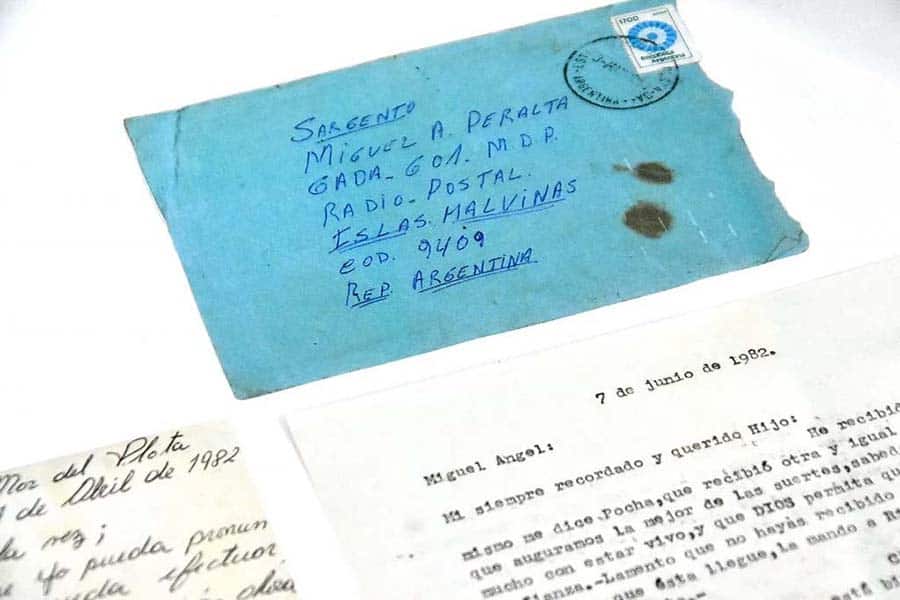 1700
ESCARAPELA
ARGENTINA
SARGENTO
MIGUEL A. PERALTA
GADA-601. M.D.P.
RADIO-POSTAL.
ISLAS. MALVINAS
COD. 9409
REP. ARGENTINA
7 de junio de 1982.
Miguel Angel:
Mi siempre recordado y querido Hijo:
He recibido
mismo me dice Pocha,que recibió otra y igual
que auguramos la mejor de las suertes,sabed
mucho con estar vivo,y que DIOS permita qu
ianza.-Lamento que no hayás recibido
que ésta llegue,la mando a R
está bi
Mar del Plata
de Abril de 1982
vez;
yo pueda pronun
efectuar